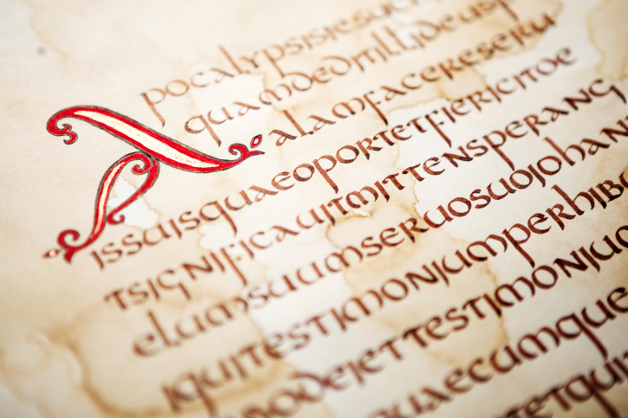 Apocalypsisiesu
quamdeditillideusp
alamfacereseru
issuisquaeoportetfiericitoe
tsignificauitmittensperang
elumsuumseruosuojohan
iquitestimoniumperhibu
rbodeiettestimoniu
uaecumque